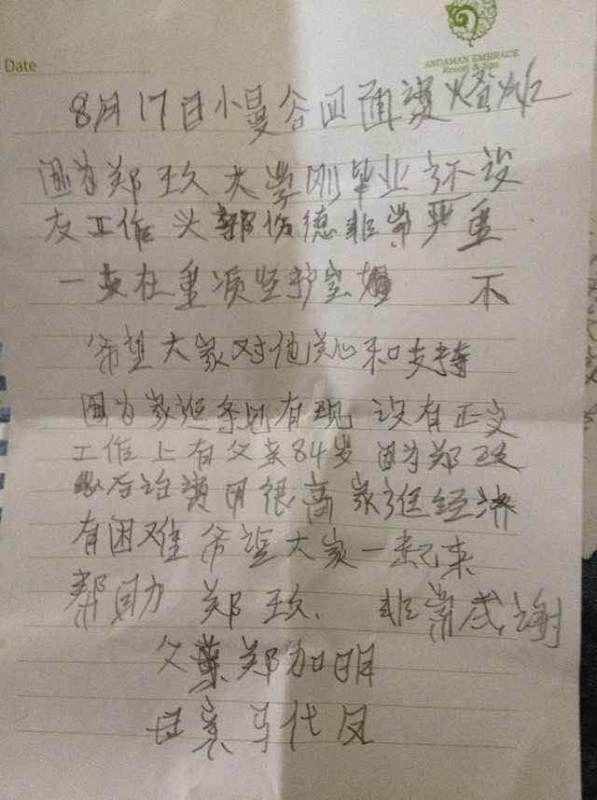 ANDAMAN EMBRACE
Resort & Spa
Date
8月17日小曼谷四面
因为郑玖大学刚毕业还没
友工作 头部伤德非常严重
一直在重 监护室 不
希望大家对他关心和支持
因为家庭条 有现 没有正
工作上有父亲84岁 因为郑玖
费用很高家庭经济
有困难 希望大家一起来
帮助 郑玖. 非常感谢
父亲郑加明
母亲马代凤